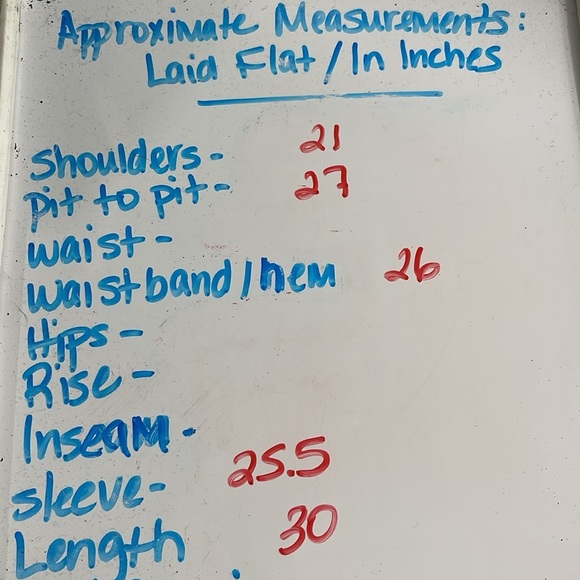 Approximate Measurements:
Laid Flat / In Inches
Shoulders- 21
pit to pit- 27
waist-
waistband/hem 26
Hips-
Rise-
Inseam-
Sleeve- 25.5
Length 30